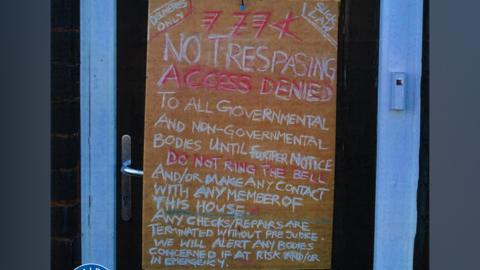 DELIVERIES
ONLY
777*
NO TRESPASING
ACCESS DENIED
TO ALL GOVERNMENTAL
AND NON-GOVERNMENTAL
BODIES UNTIL FURTHER NOTICE
DO NOT RING THE BELL
AND/OR MAKE ANY CONTACT
WITH ANY MEMBER OF
THIS HOUSE.
ANY CHECKS/REPAIRS ARE
TERMINATED WITHOUT PREJUDICE.
WE WILL ALERT ANY BODIES
CONCERNED IF AT RISK AND/OR
IN EMERGENCY.